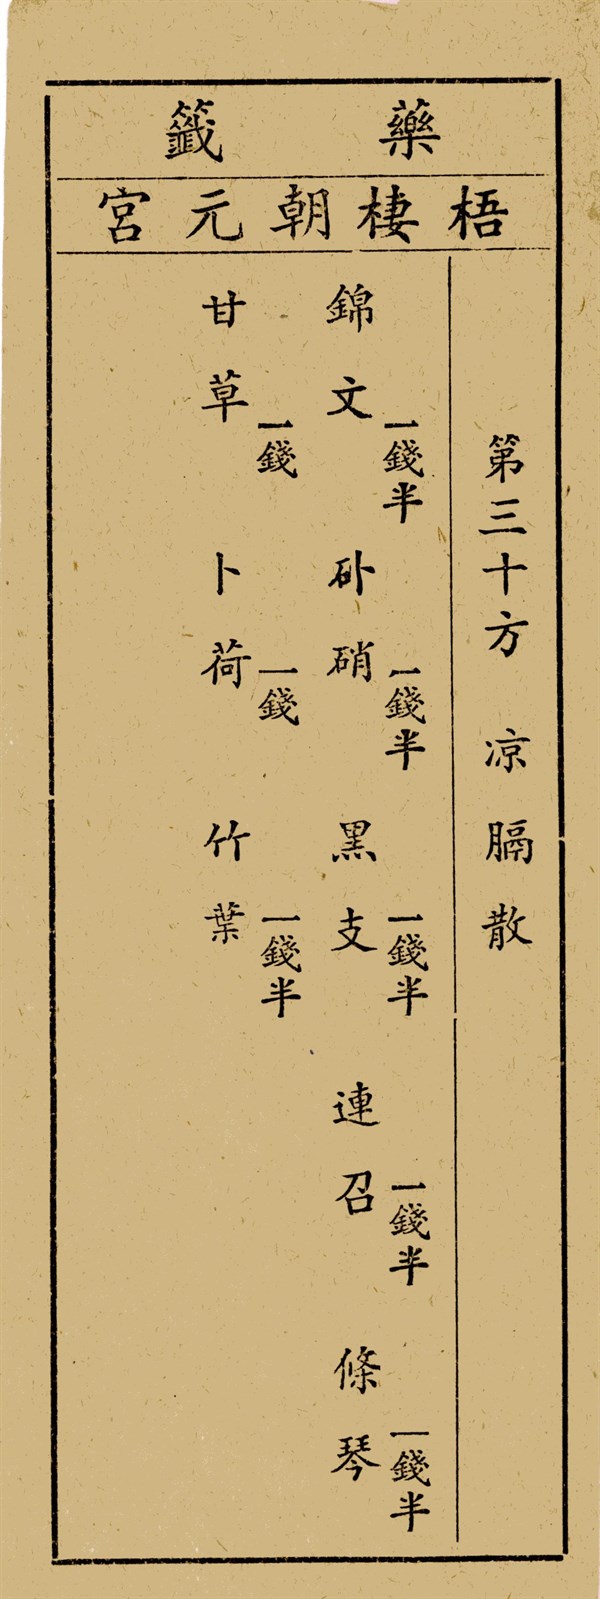 藥籤
梧棲朝元宮
第三十方 凉膈散
錦文一錢半 砅硝一錢半 黑支一錢半 連召一錢半 條琴一錢半
甘草一錢 卜荷一錢 竹葉一錢半